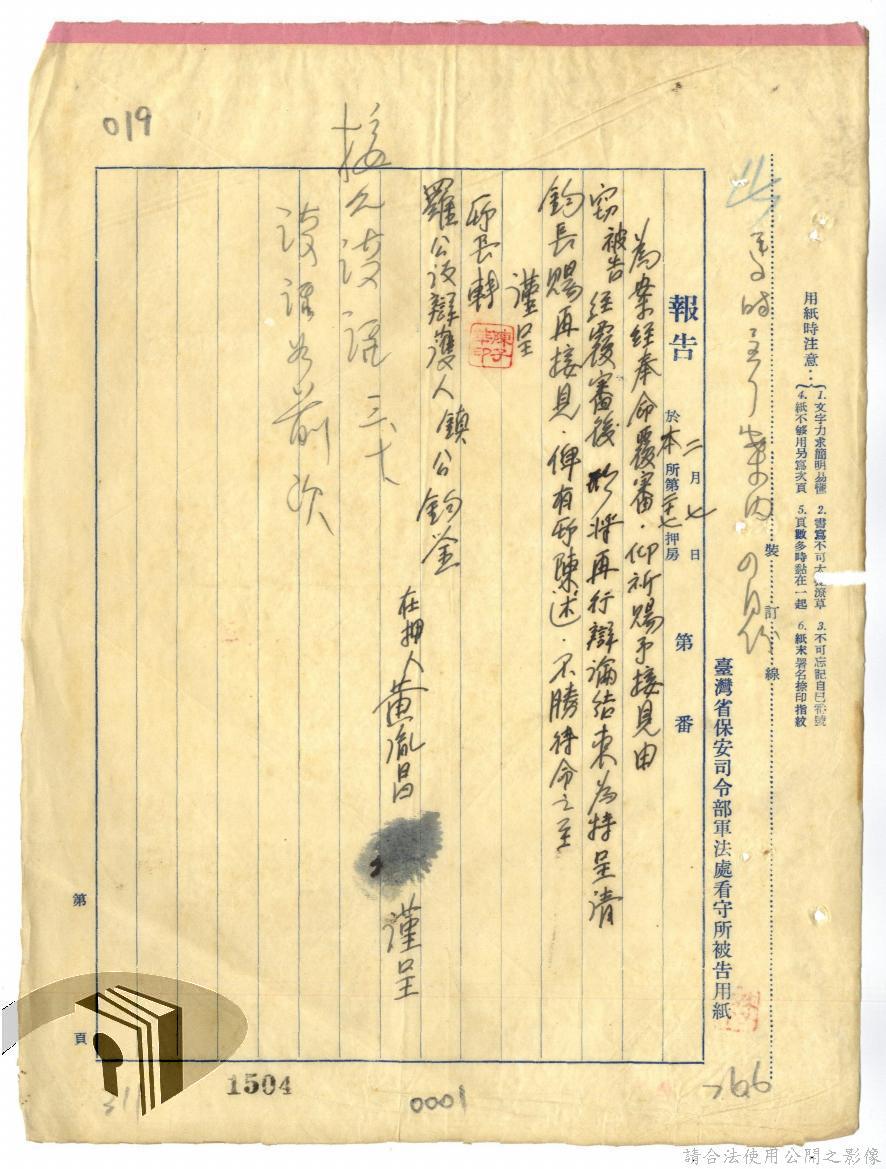 019
用紙時注意：
1.文字力求簡明易懂 2.書寫不可太潦草 3.不可忘記自己番號
4.紙不够用另寫次頁 5.頁數多時黏在一起 6.紙末署名捺印指紋
裝訂線
臺灣省保安司令部軍法處看守所被告用紙
報告 二月七日 第 番
於本所第 押房
為業經奉命覆審．仰祈賜予接見由
竊被告經覆審後 將再行辯論結束為特呈請
鈞長賜再接見．俾有所陳述．不勝待命之至
謹呈
所長轉
羅公設辯護人鎮公鈞鑒
在押人黃胤昌 謹呈
接見談話
談話如前次
第 頁
1504
0001
766
請合法使用公開之影像